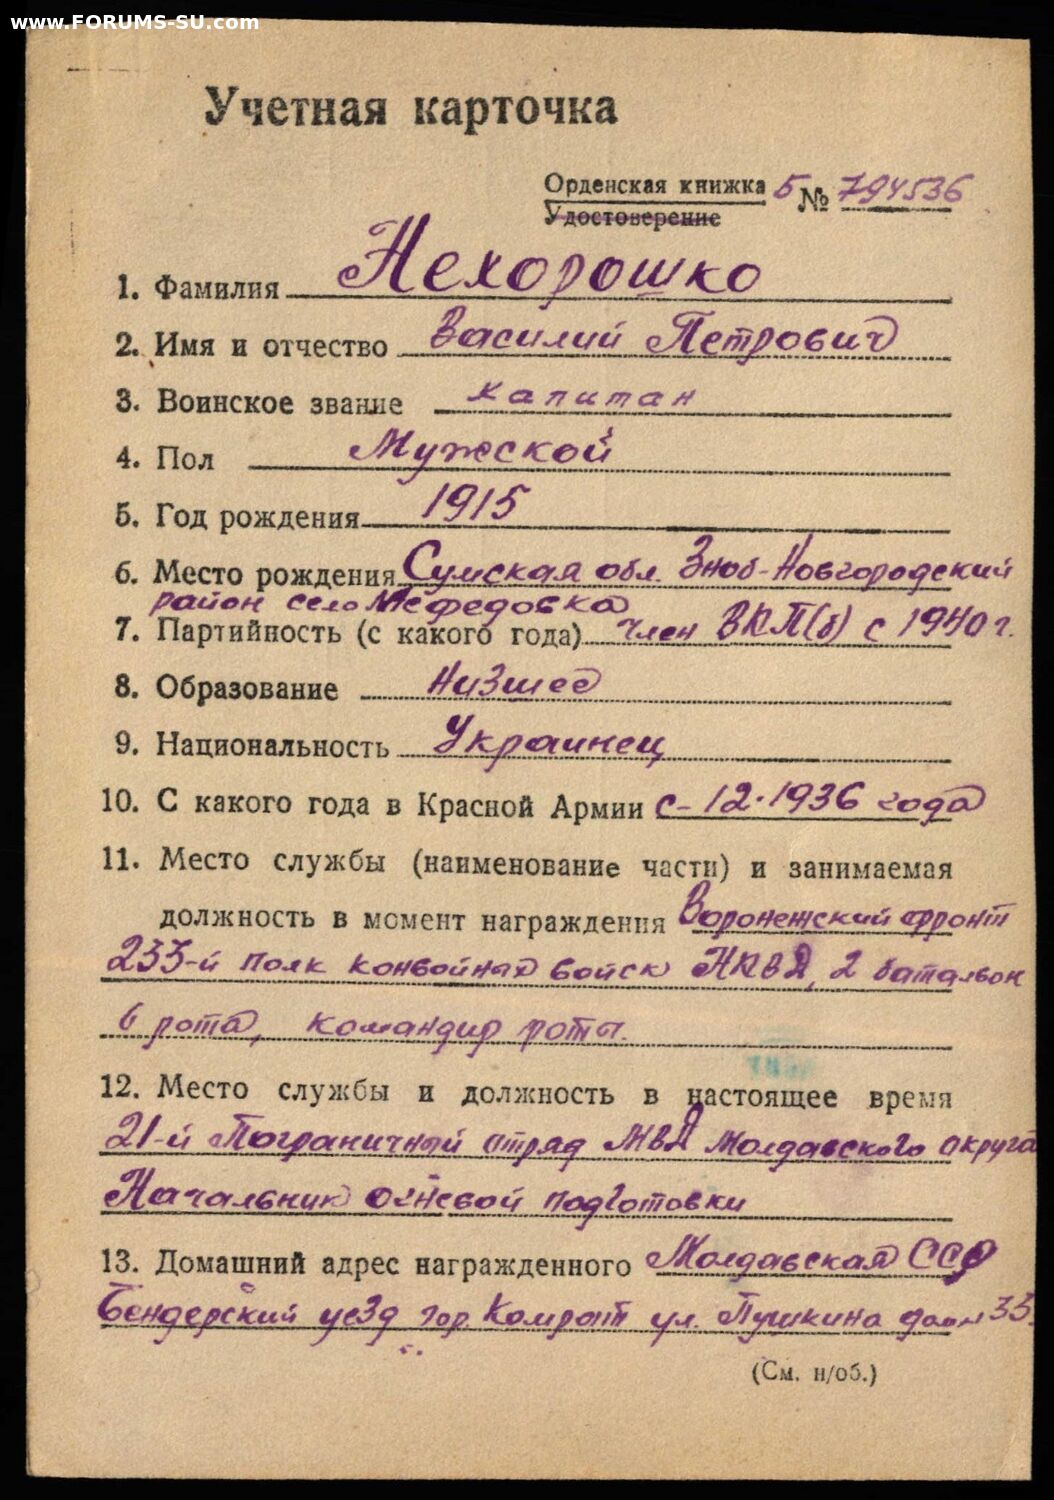 www.FORUMS-SU.com
Учетная карточка
Орденская книжка Б № 794536
Удостоверение
1. Фамилия Нехорошко
2. Имя и отчество Василий Петрович
3. Воинское звание капитан
4. Пол Мужской
5. Год рождения 1915
6. Место рождения Сумская обл. Зноб-Новгородский
район село Мефедовка
7. Партийность (с какого года) член ВКП(б) с 1940 г.
8. Образование Низшее
9. Национальность Украинец
10. С какого года в Красной Армии с-12.1936 года
11. Место службы (наименование части) и занимаемая
должность в момент награждения Воронежский фронт
233-й полк конвойных войск НКВД, 2 баталион
6 рота, командир роты.
12. Место службы и должность в настоящее время
21-й Пограничный отряд МВД Молдавского округа
Начальник огневой подготовки
13. Домашний адрес награжденного Молдавская ССР
Бендерский уезд гор. Комрат ул. Пушкина дом 33.
(См. н/об.)